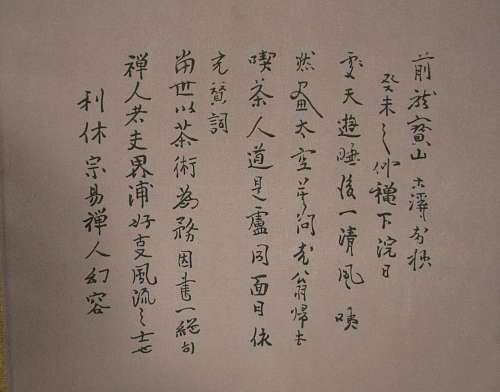 利休宗易禅人幻容
禅人者界浦好事風流之士也
當世以茶術為務因書一絶句
充賛詞
喫茶人道是盧同面目依
然盡太空莫問老翁帰去
處天遊睡後一清風 咦
癸未之仲穐下浣日
前龍寳山